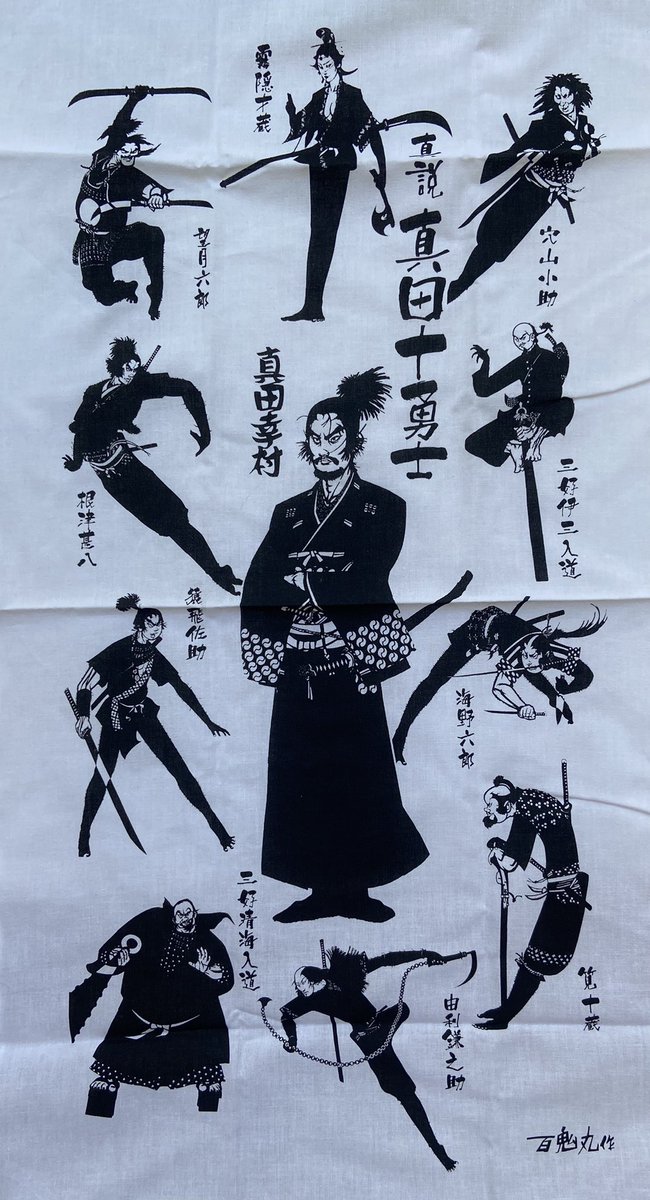 直説
真田十一勇士
真田幸村
霧隠才蔵
穴山小助
望月六郎
三好伊三入道
根津甚八
猿飛佐助
海野六郎
三好清海入道
筧十蔵
由利鎌之助
百鬼丸作